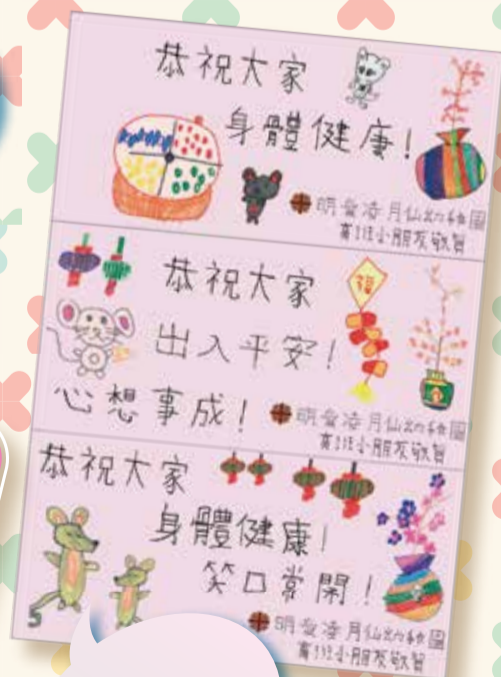 恭祝大家
身體健康!
明愛凌月仙幼稚園
高班小朋友敬賀
福
恭祝大家
出入平安!
心想事成!
明愛凌月仙幼稚園
高班小朋友敬賀
恭祝大家
身體健康!
笑口常開!
明愛凌月仙幼稚園
高班小朋友敬賀